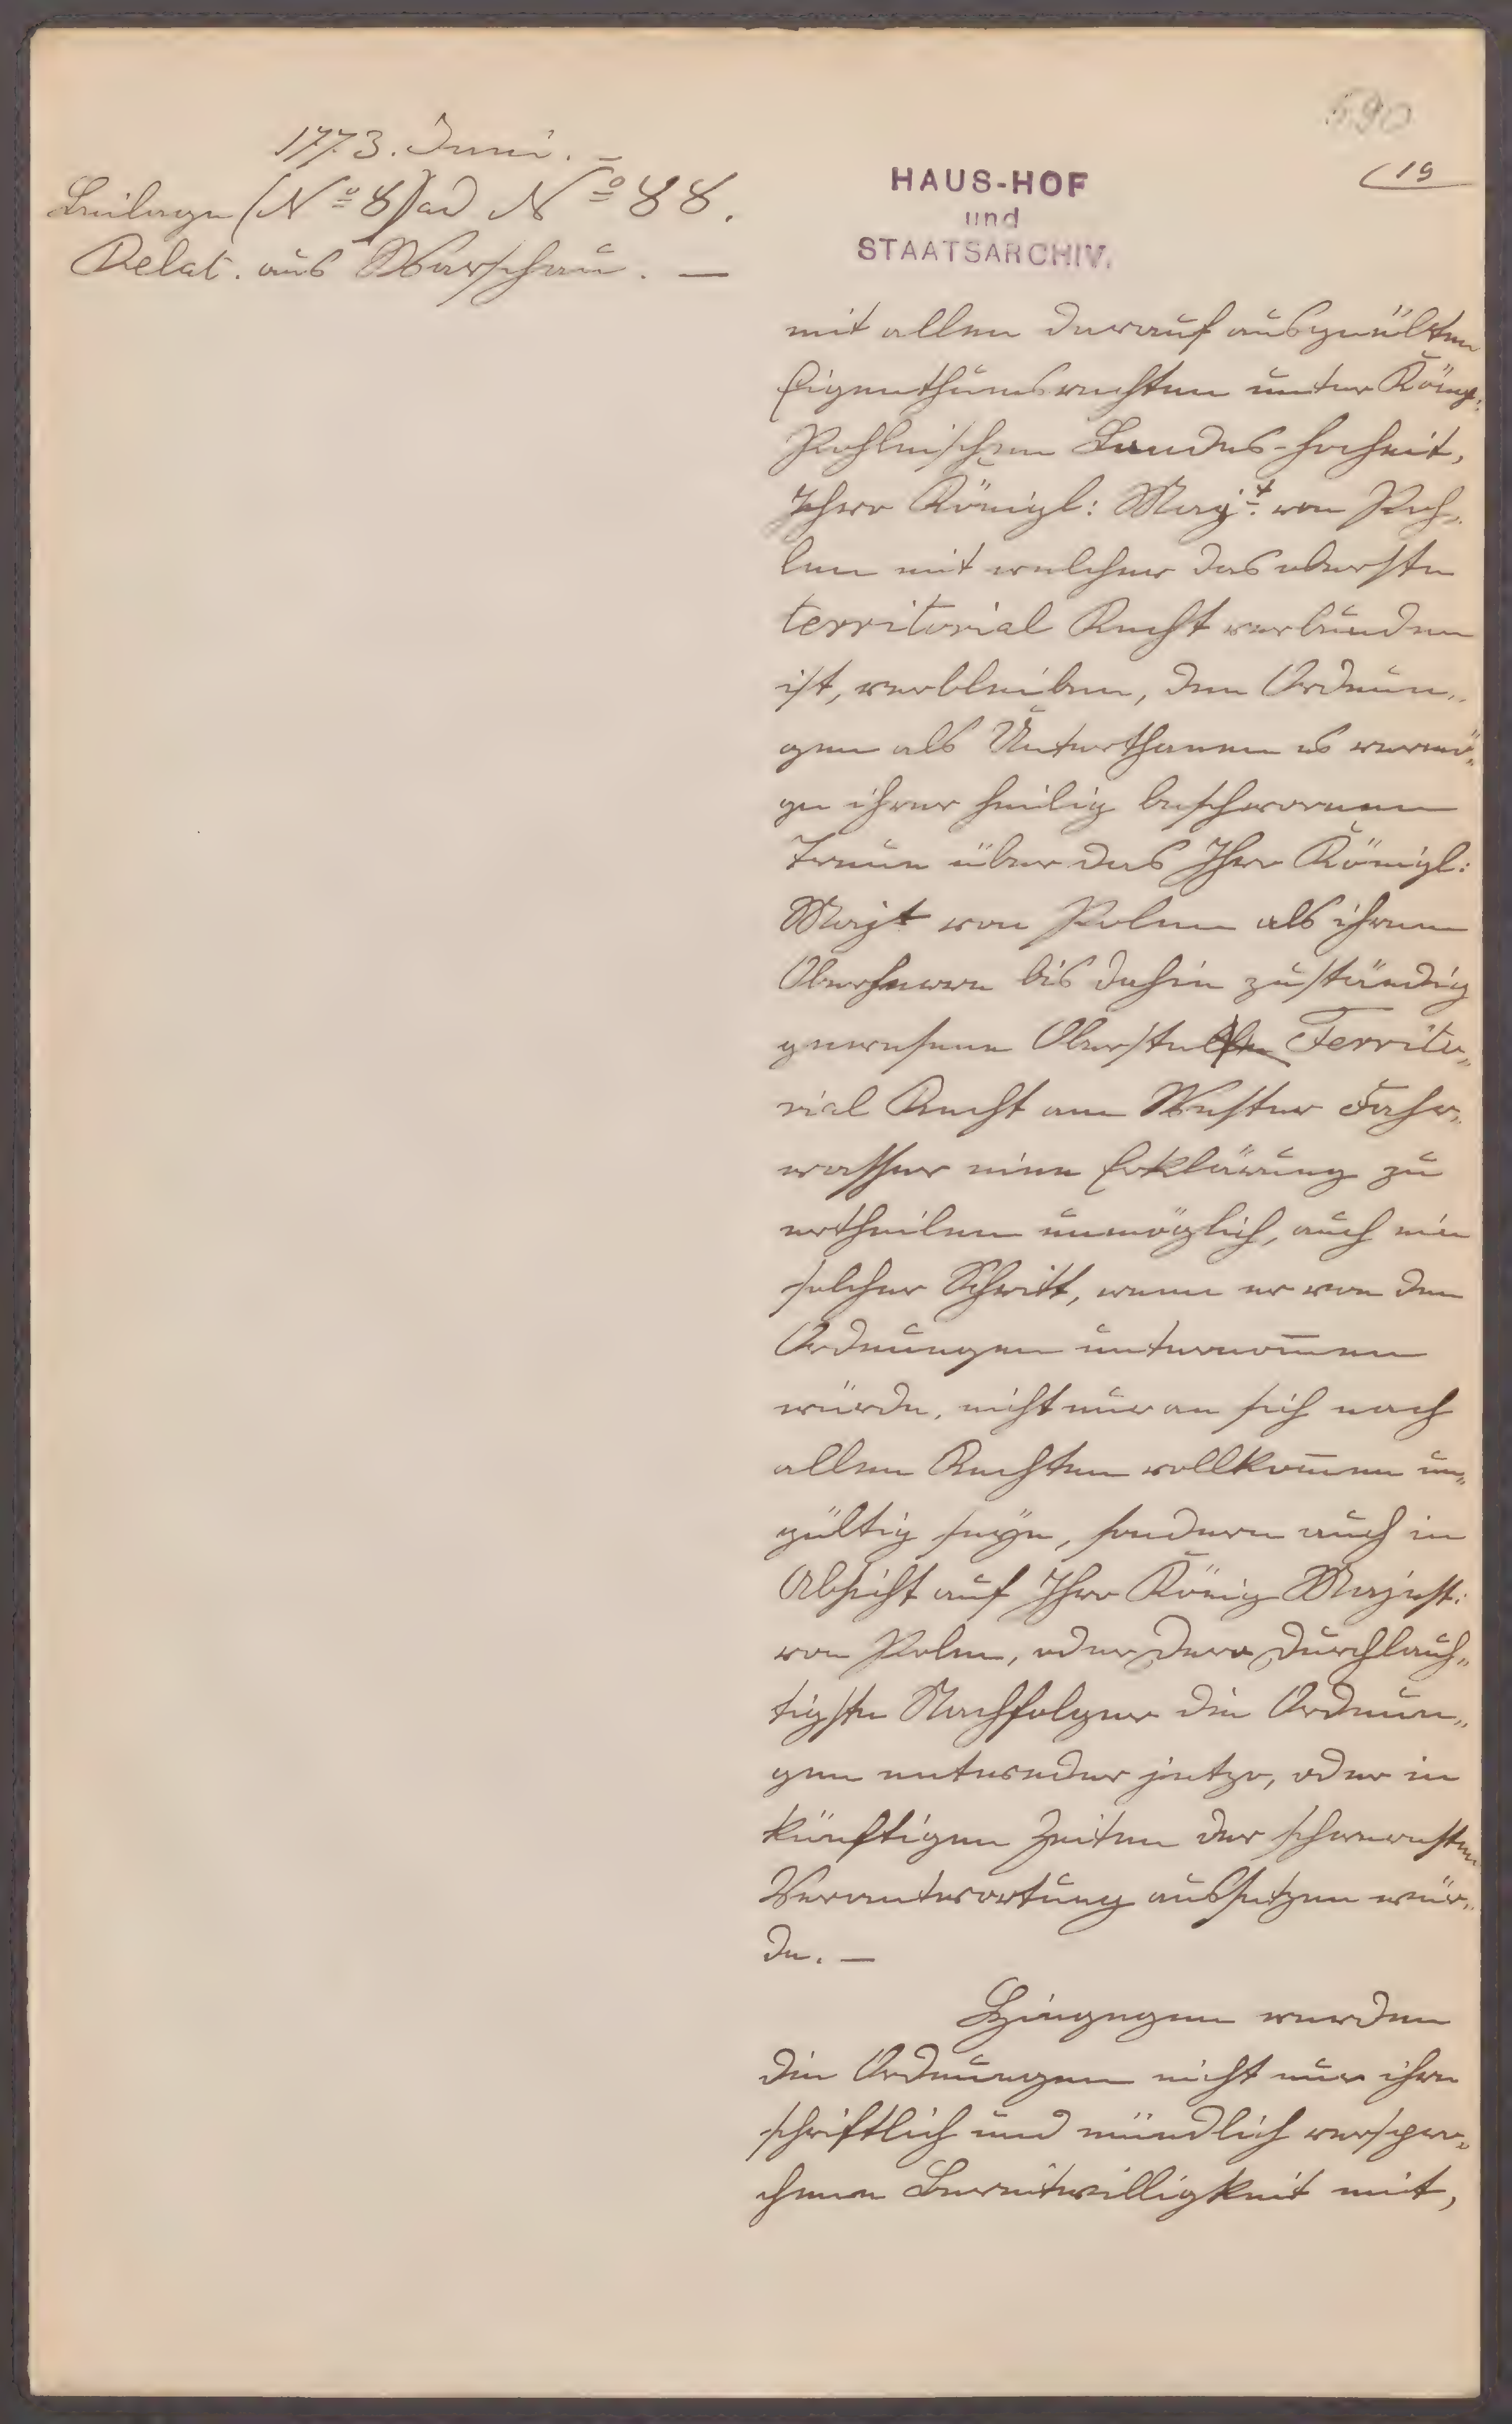 590
19
1773. Juni. –
Beilage (No 8) ad No 88.
Relat. aus Warschau. —
HAUS-HOF
und
STAATSARCHIV.
mit allen darauf ausgeübten
Eigenthumsrechten unter Königl:
Pohlnischem Landes-hocheit,
Ihro Königl: Majt. von Poh„
len mit welcher das oberste
territorial Recht verbunden
ist, verbleiben, den Ordnun„
gen als Unterthanen es vermö„
ge ihrer heilig beschwornen
Treue über das Ihro Königl:
Majt von Polen als ihrem
Oberherrn bis dahin zuständig
gewesene Oberste Territo„
rial Recht am Wester Fahr„
wasser eine Erklärung zu
ertheilen unmöglich, auch ein
solcher Schritt, wenn er von den
Ordnungen unternom̄en
würde, nicht nur an sich nach
allen Rechten vollkom̄en un„
gültig seÿn, sondern auch in
Absicht auf Ihro König Majest:
von Polen, oder dero Durchlauch„
tigste Nachfolger die Ordnun„
gen entweder jetzo, oder in
künftigen Zeiten der schweresten
Verantwortung aussetzen wür„
de. —
Hingegen werden
die Ordnungen nicht nur ihre
schriftlich und mündlich verspro„
chene Bereitwilligkeit mit,